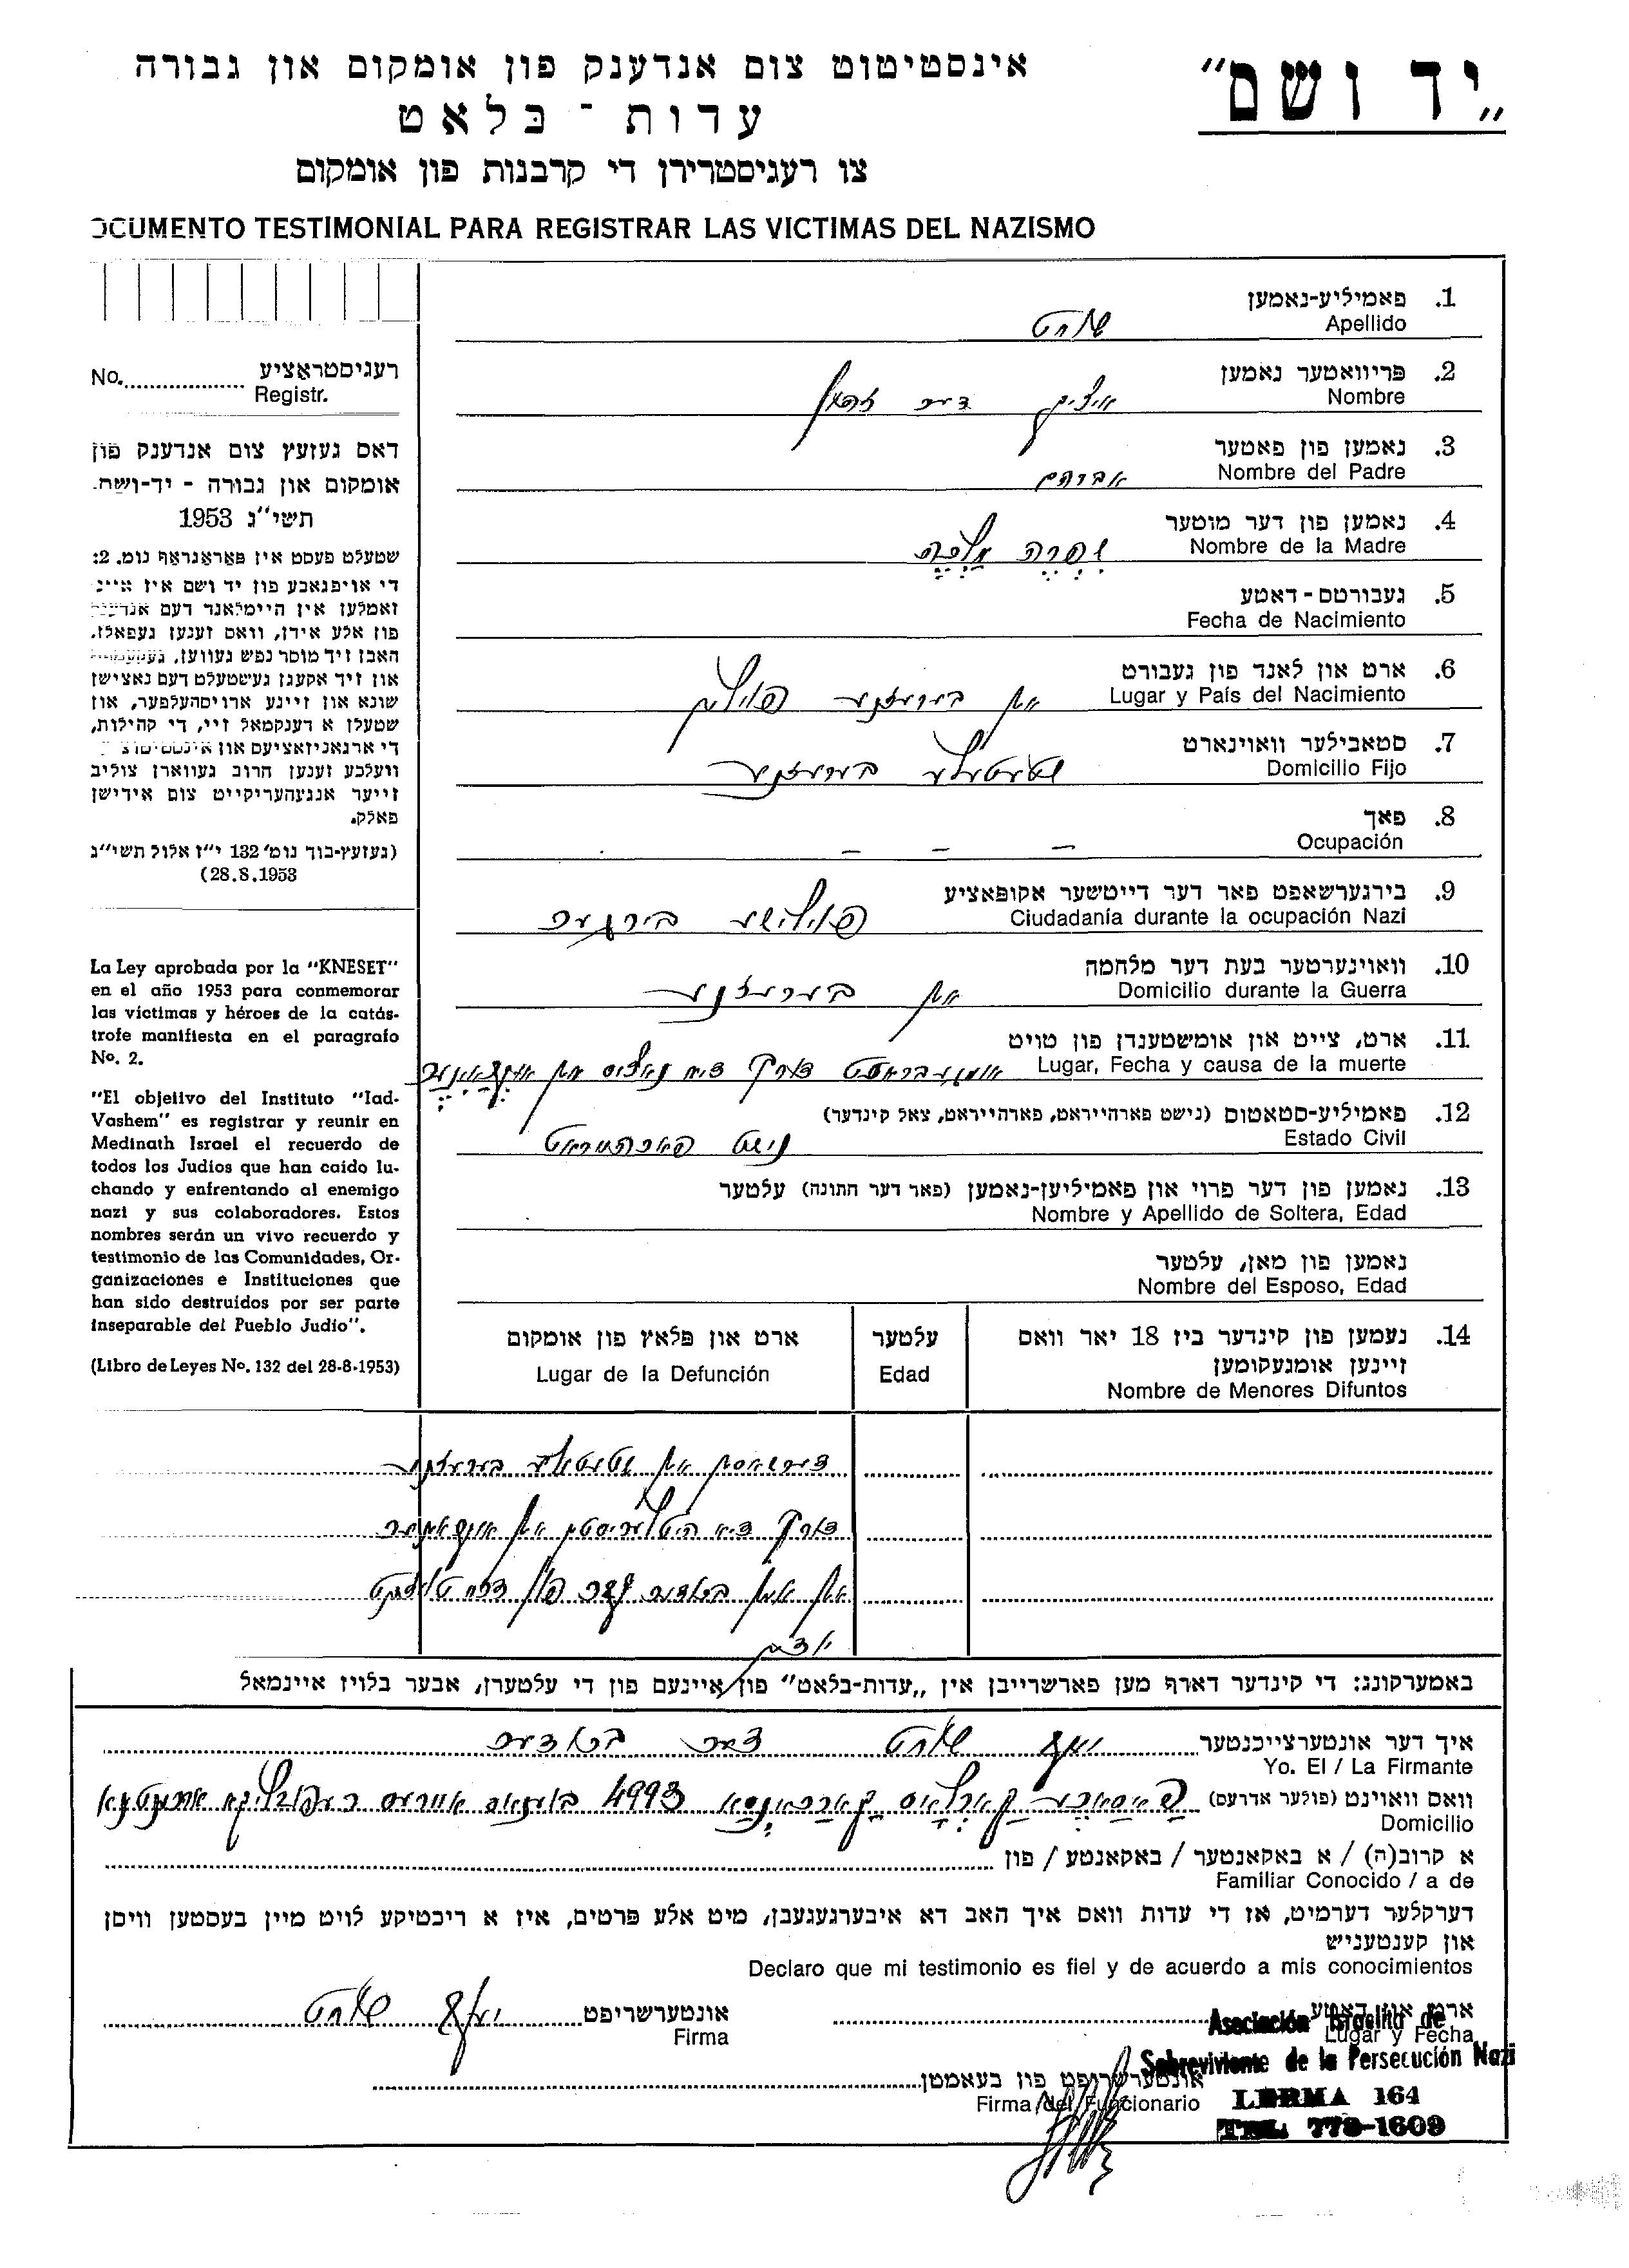 „יד ושם"
אינסטיטוט צום אנדענק פון אומקום און גבורה
עדות - בלאט
צו רעגיסטרירן די קרבנות פון אומקום
OCUMENTO TESTIMONIAL PARA REGISTRAR LAS VICTIMAS DEL NAZISMO
רעגיסטראציע
No. Registr.
דאס געזעץ צום אנדענק פון
אומקום און גבורה - יד-ושם.
תשי"ג 1953
שטעלט פעסט אין פאראגראף נומ. 2:
די אויפגאבע פון יד ושם איז איינ
זאמלען אין היימלאנד דעם אנדענק
פון אלע אידן, וואס זענען געפאלן.
האבן זיך מוסר נפש געווען,
און זיך אקעגן געשטעלט דעם נאצישן
שונא און זיינע ארויסהעלפער, און
שטעלן א דענקמאל זיי, די קהילות,
די ארגאניזאציעס און אינסטיטוצ
וועלכע זענען חרוב געווארן צוליב
זייער אנגעהעריקייט צום אידישן
פאלק.
(געזעץ-בוך נומ' 132 י"ז אלול תשי"ג
28.8.1953)
La Ley aprobada por la "KNESET"
en el año 1953 para conmemorar
las víctimas y héroes de la catás-
trofe manifiesta en el paragrafo
No. 2.
"El objetivo del Instituto "Iad-
Vashem" es registrar y reunir en
Medinath Israel el recuerdo de
todos los Judios que han caído lu-
chando y enfrentando al enemigo
nazi y sus colaboradores. Estos
nombres serán un vivo recuerdo y
testimonio de las Comunidades, Or-
ganizaciones e Instituciones que
han sido destruídos por ser parte
inseparable del Pueblo Judio".
(Libro de Leyes No. 132 del 28-8-1953)
1. פאמיליע-נאמען
Apellido שוחט
2. פריוואטער נאמען
Nombre איציק דער
3. נאמען פון פאטער
Nombre del Padre אברהם
4. נאמען פון דער מוטער
Nombre de la Madre שרה מלכה
5. געבורטס-דאטע
Fecha de Nacimiento
6. ארט און לאנד פון געבורט
Lugar y País del Nacimiento אין בערעזנע פוילין
7. סטאבילער וואוינארט
Domicilio Fijo שטעטלע בערעזנע
8. פאך
Ocupación - - -
9. בירגערשאפט פאר דער דייטשער אקופאציע
Ciudadanía durante la ocupación Nazi פוילישע בירגער
10. וואוינערטער בעת דער מלחמה
Domicilio durante la Guerra אין בערעזנע
11. ארט, צייט און אומשטענדן פון טויט
Lugar, Fecha y causa de la muerte אומגעבראכט דורך דיא נאציס אין
12. פאמיליע-סטאטוס (נישט פארהייראט, פארהייראט, צאל קינדער)
Estado Civil נישט פארהייראט
13. נאמען פון דער פרוי און פאמיליען-נאמען (פאר דער חתונה) עלטער
Nombre y Apellido de Soltera, Edad
נאמען פון מאן, עלטער
Nombre del Esposo, Edad
14. נעמען פון קינדער ביז 18 יאר וואס
זיינען אומגעקומען
Nombre de Menores Difuntos
עלטער
Edad
ארט און פלאץ פון אומקום
Lugar de la Defunción
דערשאסן אין שטעטלע בערעזנע
דורך דיא היטלעריסטן אין
אין ברודער פון דרײ טויזנט
יודען
באמערקונג: די קינדער דארף מען פארשרייבן אין „עדות-בלאט" פון איינעם פון די עלטערן, אבער בלויז איינמאל
איך דער אונטערצייכנטער יוסף שוחט דער ברודער
Yo. El / La Firmante
וואס וואוינט (פולער אדרעס) 4993 בוענאס איירעס רעפובליקא ארגענטינא
Domicilio
א קרוב(ה) / א באקאנטער / באקאנטע / פון
Familiar Conocido / a de
דערקלער דערמיט, אז די עדות וואס איך האב דא איבערגעגעבן, מיט אלע פרטים, איז א ריכטיקע לויט מיין בעסטען וויסן
און קענטעניש
Declaro que mi testimonio es fiel y de acuerdo a mis conocimientos
ארט און דאטע
Lugar y Fecha
אונטערשריפט יוסף שוחט
Firma
Asociación Israelita de
Sobreviviente de la Persecución Nazi
LERMA 164
TEL. 773-1609
אונטערשריפט פון בעאמטן
Firma del Funcionario